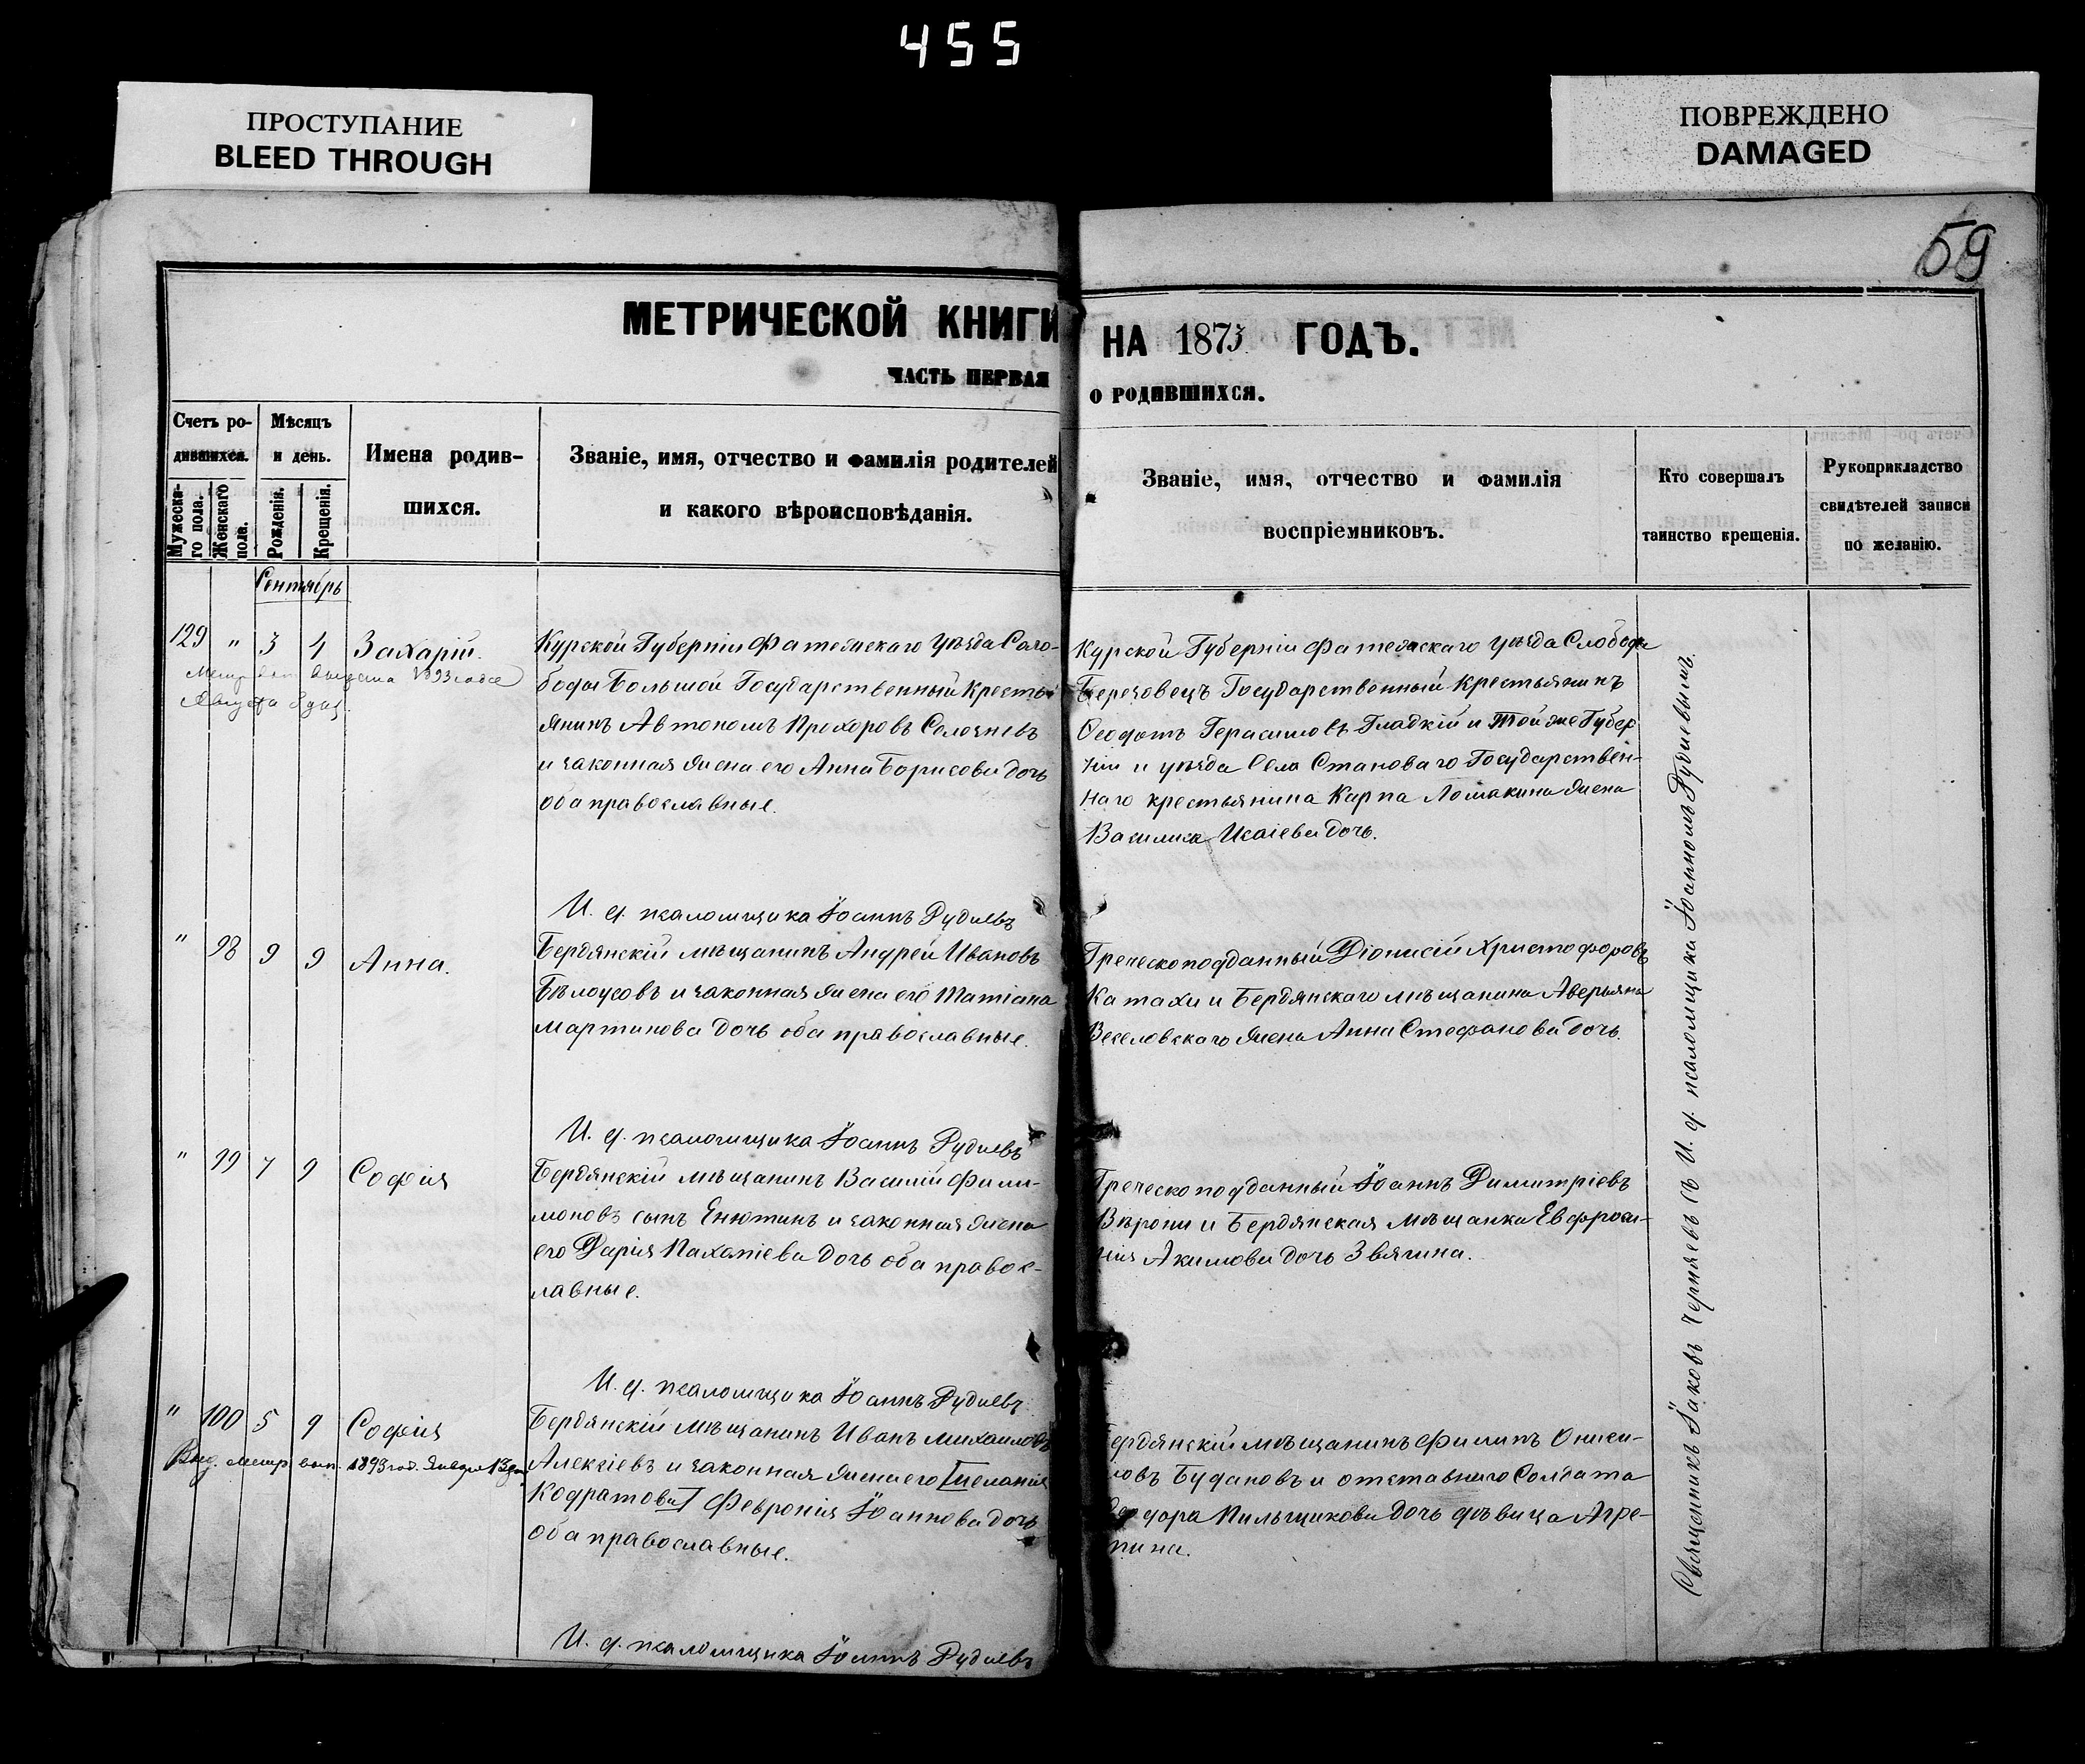 455
ПРОСТУПАНИЕ
BLEED THROUGH
ПОВРЕЖДЕНО
DAMAGED
59
МЕТРИЧЕСКОЙ КНИГИ НА 1873 ГОДЪ.
ЧАСТЬ ПЕРВАЯ О РОДИВШИХСЯ.
Счетъ ро-
дившихся.
Мужеска-
го пола.
Женскаго
пола.
Мѣсяцъ
и день.
Рожденія.
Крещенія.
Имена родив-
шихся.
Званіе, имя, отчество и фамилія родителей
и какого вѣроисповѣданія.
Званіе, имя, отчество и фамилія
воспріемниковъ.
Кто совершалъ
таинство крещенія.
Рукоприкладство
свидѣтелей записи
по желанію.
Сентябрь
129 " 3 4 Захарій.
1893 года
Августа
Курской Губерніи Фатежскаго Уѣзда Сло-
боды Большой Государственный Кресть-
янинъ Автономъ Прохоровъ
и законная жена его Анна Борисова дочь
оба православные.
Курской Губерніи Фатежскаго уѣзда Слободы
Березовецъ Государственный крестьянинъ
Ѳеодотъ Герасимовъ Гладкій и той же Губер
ніи и уѣзда Села Становаго Государствен-
наго крестьянина Карпа Ломакина жена
Василиса Исаіева дочь.
И. д. псаломщика Іоаннъ Рудневъ
" 98 9 9 Анна.
Бердянскій мѣщанинъ Андрей Ивановъ
Бѣлоусовъ и законная жена его Татіана
Мартинова дочь оба православные.
Греческоподданный Діонисій Христофоровъ
Катахи и Бердянскаго мѣщанина Аверьяна
Веселовскаго жена Анна Стефанова дочь.
И. д. псаломщика Іоаннъ Рудневъ
" 99 7 9 Софія
Бердянскій мѣщанинъ Василій Фили-
моновъ сынъ Енютинъ и законная жена
его Дарія Пахоміева дочь оба правос-
лавные.
Греческоподданный Іоаннъ Димитріевъ
Вѣрони и Бердянская мѣщанка Евфроси-
нія Акимова дочь Звягина.
И. д. псаломщика Іоаннъ Рудневъ
" 100 5 9 Софія
Выд. метр. вып. 1893 год. Января
Бердянскій мѣщанинъ Иванъ Михаиловъ
Алексіевъ и законная жена его [Меланія
Кодратова] Февронія Іоаннова дочь
оба православные.
Бердянскій мѣщанинъ Филипъ Ониси-
мовъ Будановъ и отставнаго Солдата
Ѳедора Пильщикова дочь дѣвица Агре-
пина.
И. д. псаломщика Іоаннъ Рудневъ
Священникъ Іаковъ Черняевъ съ И. д. псаломщика Іоанномъ Рудневымъ.